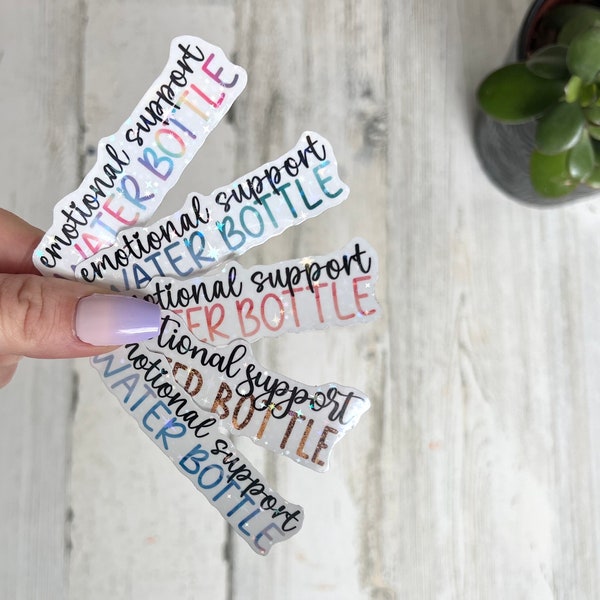 emotional support
WATER BOTTLE
emotional support
WATER BOTTLE
emotional support
TER BOTTLE
tional support
TER BOTTLE
emotional support
WATER BOTTLE